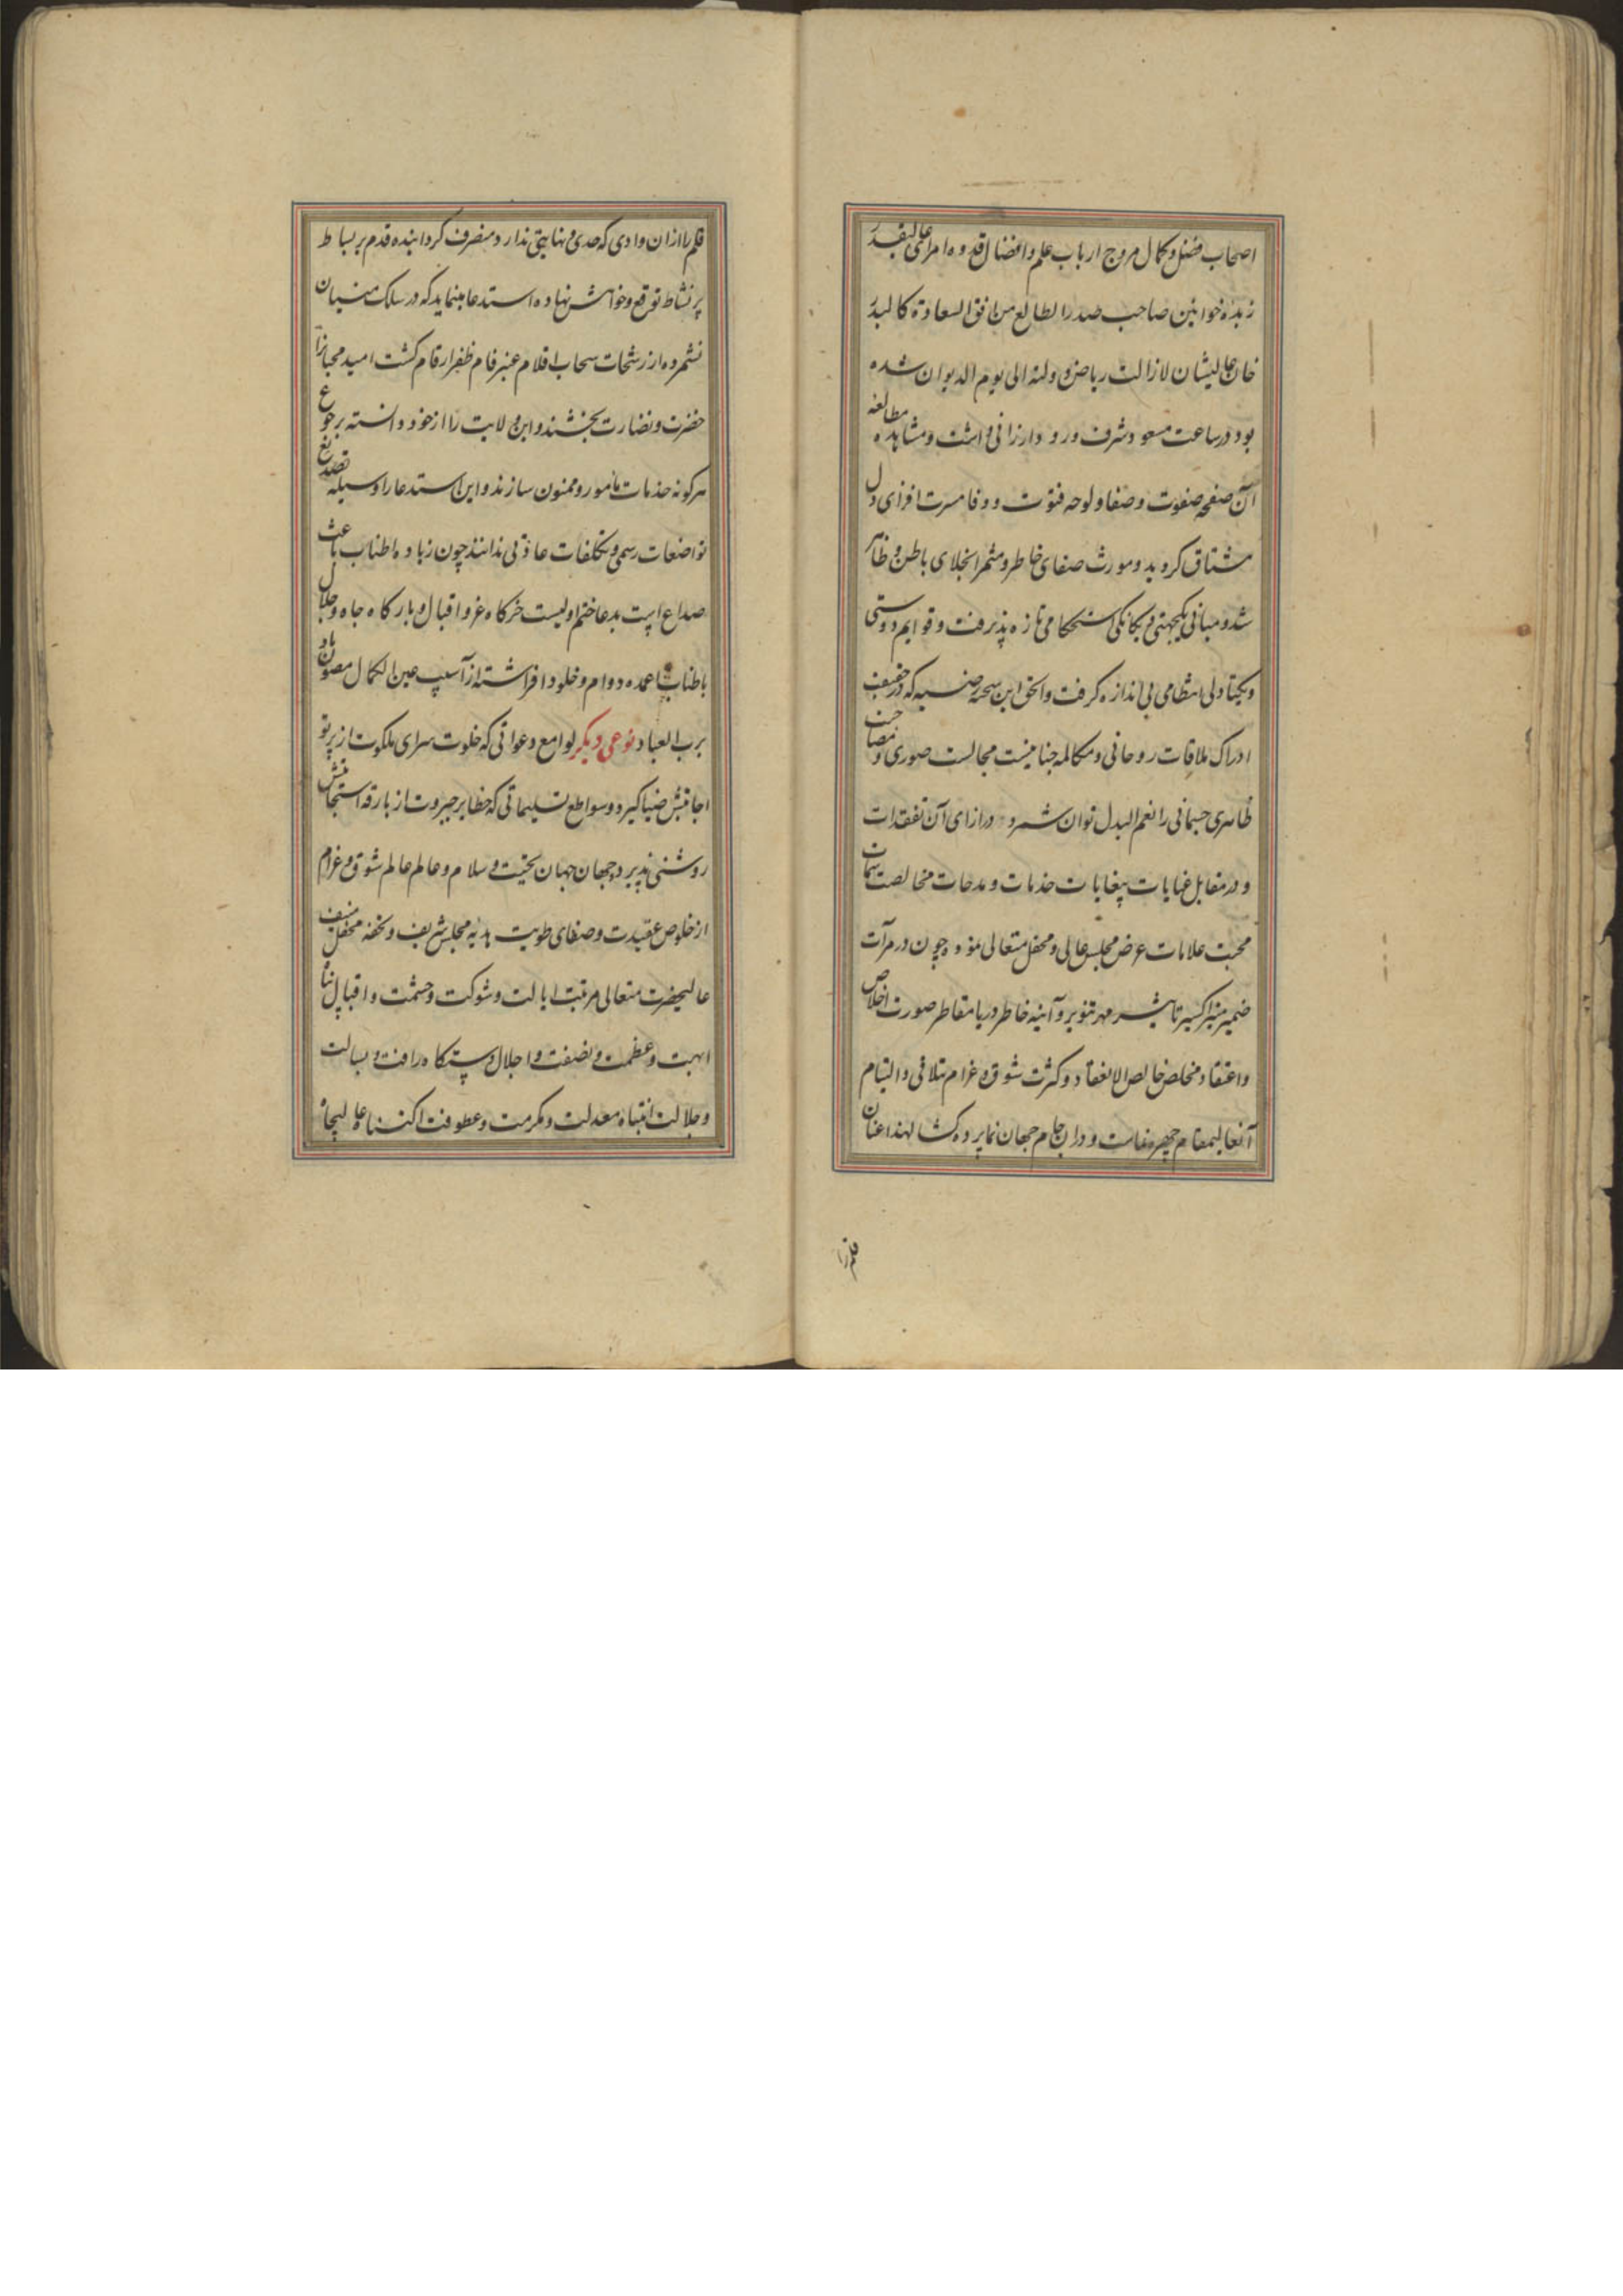 اصحاب فضل و کمال مروج ارباب علم و افضال قدوه امرای عالیقدر
زبده خوانین صاحب صدر الطالع من افق السعادة کالبدر
خان عالیشان لا زالت ریاض دولته الی یوم الدیوان شده
بود در ساعت مسعود شرف ورود ارزانی داشت و مشاهده مطالعه
آن صفحه صفوت و صفا و لوحه فتوت و وفا مسرت افزای دل
مشتاق کردید و مورث صفای خاطر و مثمر انجلای باطن و ظاهر
شد و مبانی یکجهتی و یکانکی استحکامی تازه پذیرفت و قوایم دوستی
و یکتادلی انتظامی بی اندازه کرفت و الحق این که در حقیقت
ادراک ملاقات روحانی و مکالمه جنانیست مجالست صوری و مصاحبت
ظاهری جسمانی را نعم البدل توان شمرد در ازای آن تفقدات
و در مقابل عنایات بیغایات خدمات و مدحات مخالصت سمات
محبت علامات عرض مجلس عالی و محفل متعالی نموده چون در مرآت
ضمیر منیر اکسیر تاثیر مهر تنویر و آینه خاطر دریا مقاطر صورت اخلاص
و اعتقاد مخلص خالص الانعقاد و کثرت شوق و غرام تلاقی و التیام
آنعالیمقام چهره نماست و در ان جام جهان نما پرده کشا لهذا عنان
قلم را
قلم را ازان وادی که حدی و نهایتی ندارد منصرف کردانیده قدم بر بساط
پر نشاط توقع و خواهش نهاده استدعا مینماید که در سلک منسیان
نشمرده از رشحات سحاب اقلام عنبر فام ظفر ارقام کشت امید محبانرا
خضرت و نضارت بخشند و این ولایت را از خود دانسته برجوع
هرکونه خدمات مامور و ممنون سازند و این استدعا را وسیله تصدیع
تواضعات رسمی و تکلفات عادتی ندانند چون زیاده اطناب باعث
صداع است بدعا ختم اولیست خرکاه عز و اقبال و بارکاه جاه و جلال
باطناب اعمده دوام و خلود افراشته از آسیب عین الکمال مصون باد
برب العباد نوعی دیکر لوامع دعواتی که خلوت سرای ملکوت از پرتو
اجابتش ضیا کیرد و سواطع تسلیماتی که حظایر جبروت از بارقه استجابتش
روشنی پذیرد جهان جهان تحیت و سلام و عالم عالم شوق و غرام
از خلوص عقیدت و صفای طویت هدیه مجلس شریف و تحفه محفل منیف
عالیحضرت متعالی مرتبت ایالت و شوکت و حشمت و اقبال پناه
ابهت و عظمت و نصفت و اجلال دستکاه رافت و بسالت
و جلالت انتباه معدلت و مکرمت و عطوفت اکتناه عالیجاه